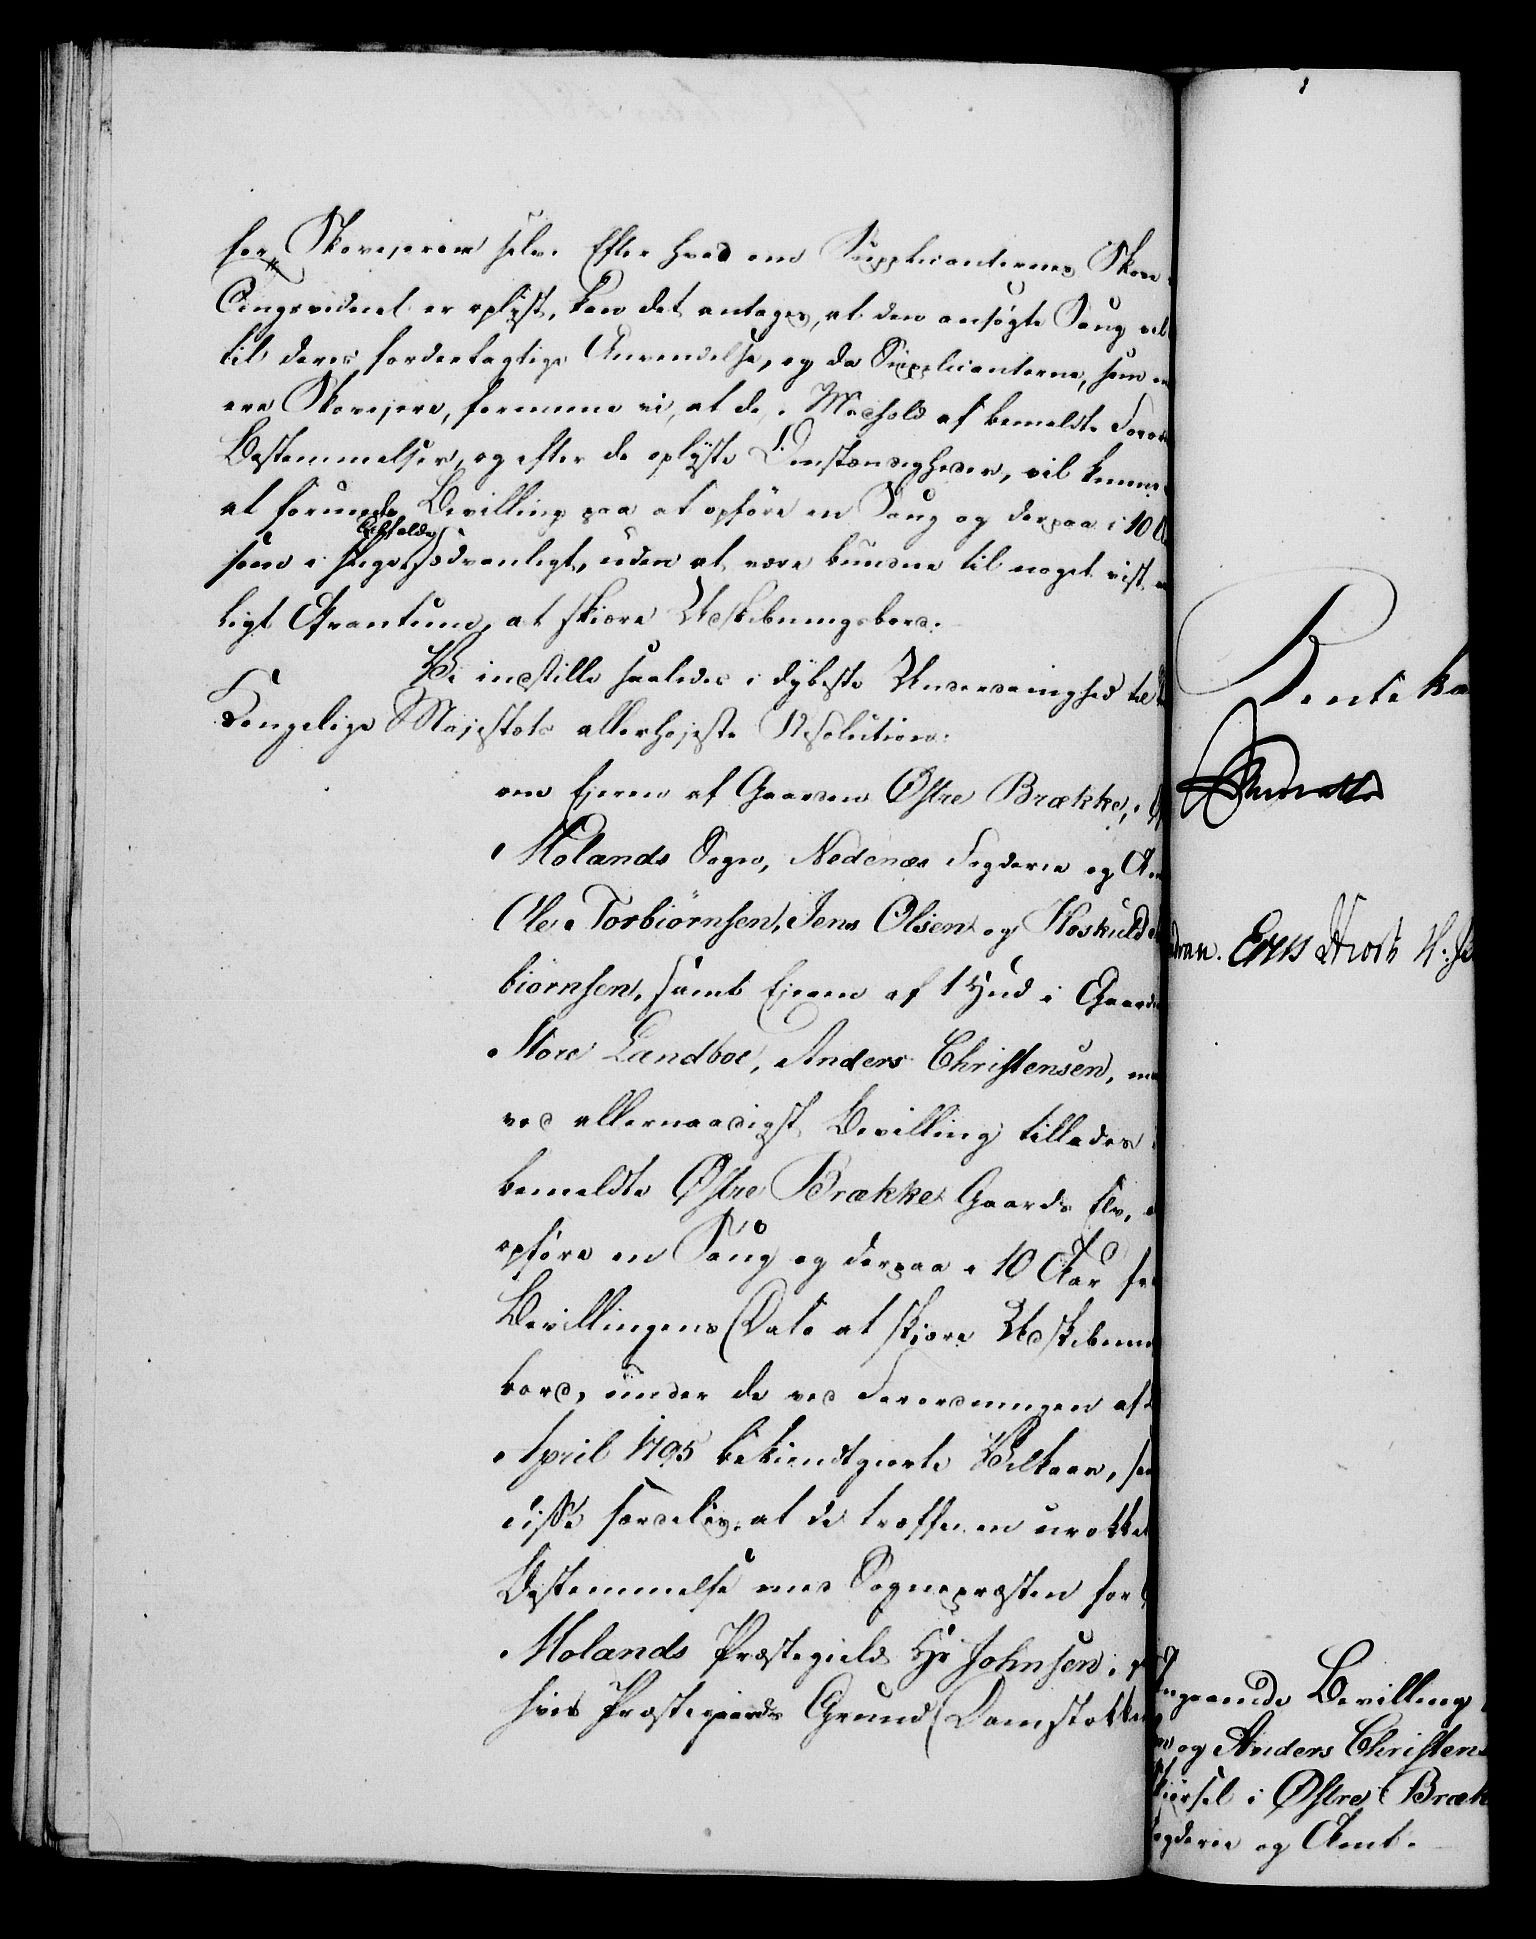 for Skovejeren selv. Efter hvad om Supplicanternes Skove
Tingsvidnet er oplyst, kan det antages, at den ansøgte Saug vil
til deres fordeelagtige Anvendelse, og da Supplicanterne, som
ere Skovejere, formene vi, at de, i Medhold af bemeldte Foror
Bestemmelser, og efter de oplyste Omstændigheder, vil kunne
at forunde Bevilling paa at opføre en Saug og derpaa i 10
Tilfælde
som i slige sædvanligt, uden at være bundne til noget vist
ligt Qvantum, at skiære Udskibningsbord.
Vi indstille saaledes i dybeste Underdanighed til
Kongelige Majestæts allerhøjeste Resolution:
om Ejerne af Gaarden Østre Brække, i
Molands Sogn, Nedenæs Fogderie og
Ole Torbiørnsen, Jens Olsen og Hoskuld
biørnsen, samt Ejeren af 1 Hud i Gaard
Store Landboe, Anders Christensen, maa
ved allernaadigst Bevilling tillades
bemeldte Østre Brække Gaards Elv,
opføre en Saug og derpaa i 10 Aar fra
Bevillingens Dato at skjære Udskibnings
bord, under de ved Forordningen af
April 1795 bekiendtgiorte Vilkaar, 
disse særdeles, at de træffe en
Bestemmelse med Sognepræsten for
Molands Præstegield Hr Johnsen,
hvis Præstegaards Grund Damstokken
Rente ka
ngaaende Bevilling
og Anders Christens
kiørsel i Østre Bræk
ogderie og Amt.